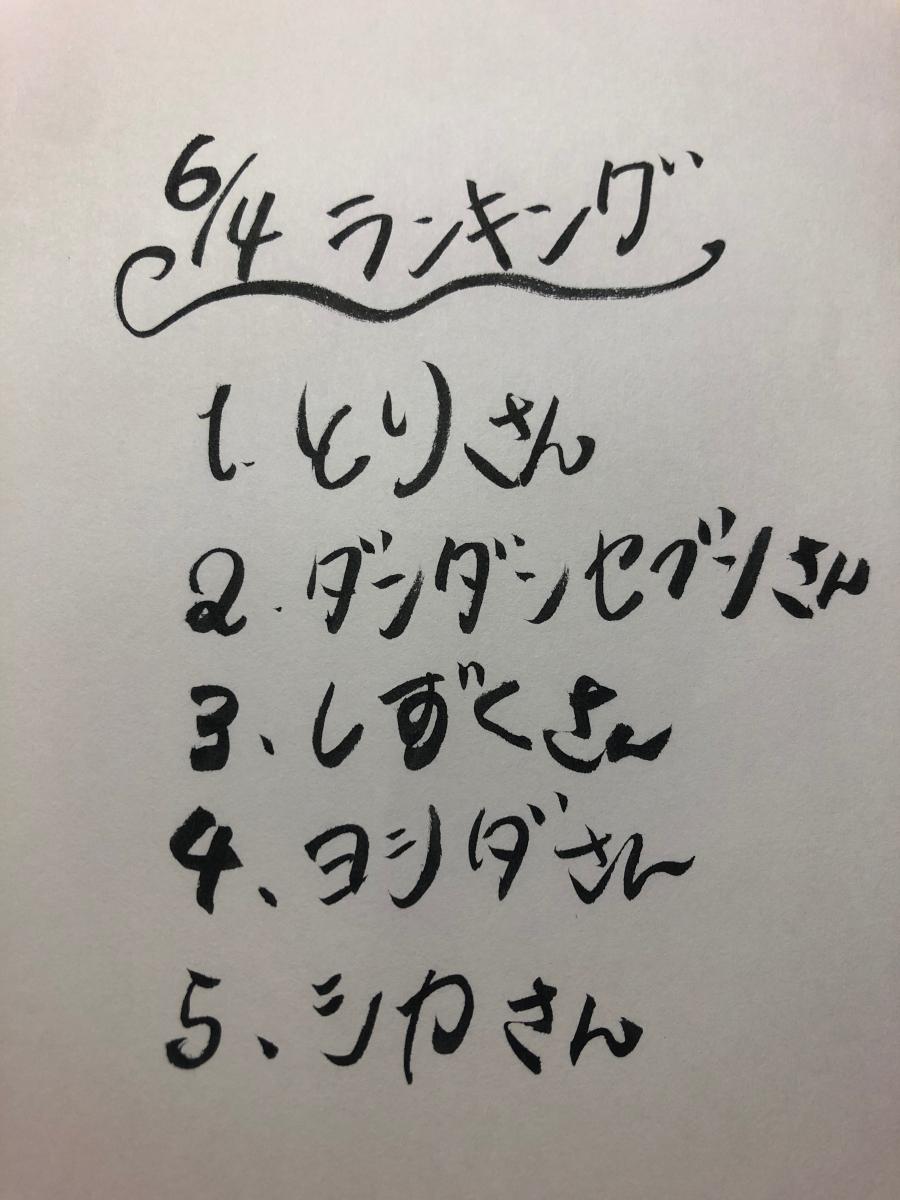 6/4 ランキング
1. とりさん
2. ダンダンセブンさん
3、しずくさん
4、ヨシダさん
5、シカさん